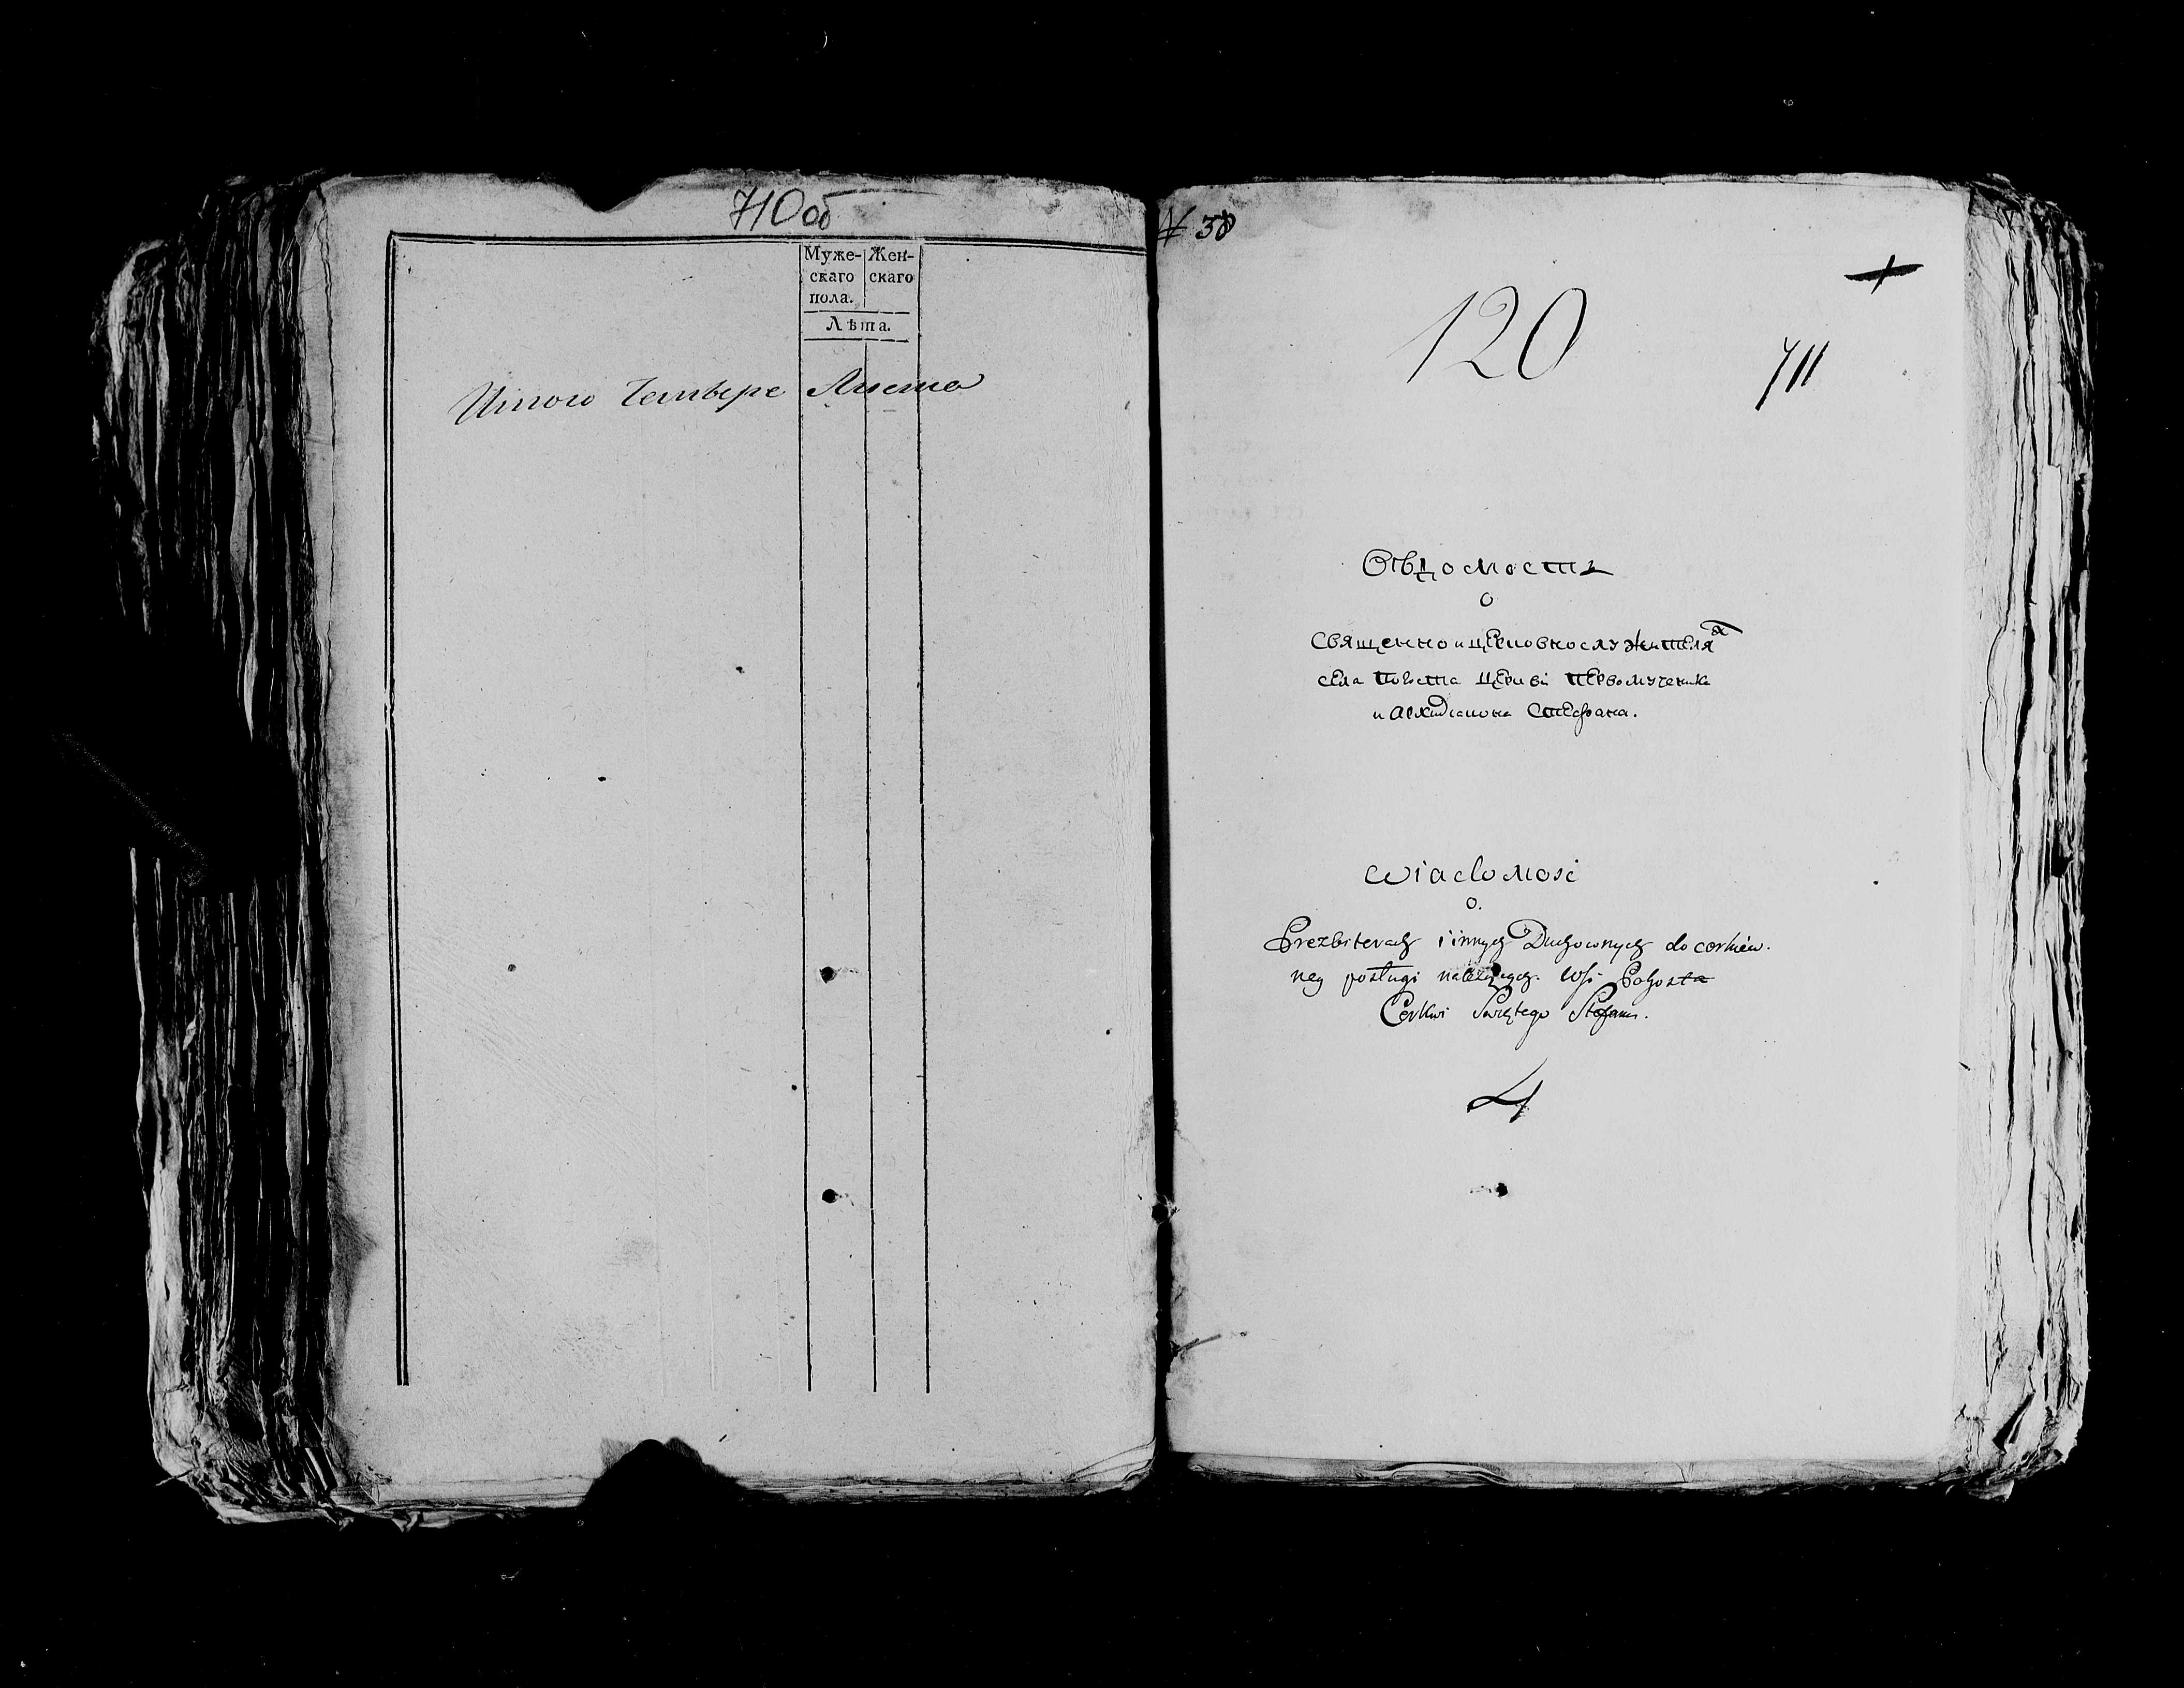 710об
Муже-
скаго
пола.
Жен-
скаго
Лѣта.
Итого Четыре Листа
№ 38
120
711
Вѣдомость
о
Священно и церковнослужителях
села Погоста церкви первомученика
и архидиакона Стефана.
Wiadomość
o.
Prezbiterach i innych Duchownych do cerkiew.
ney posługi należących. Wsi Pohosta
Cerkwi Świętego Stefana.
4